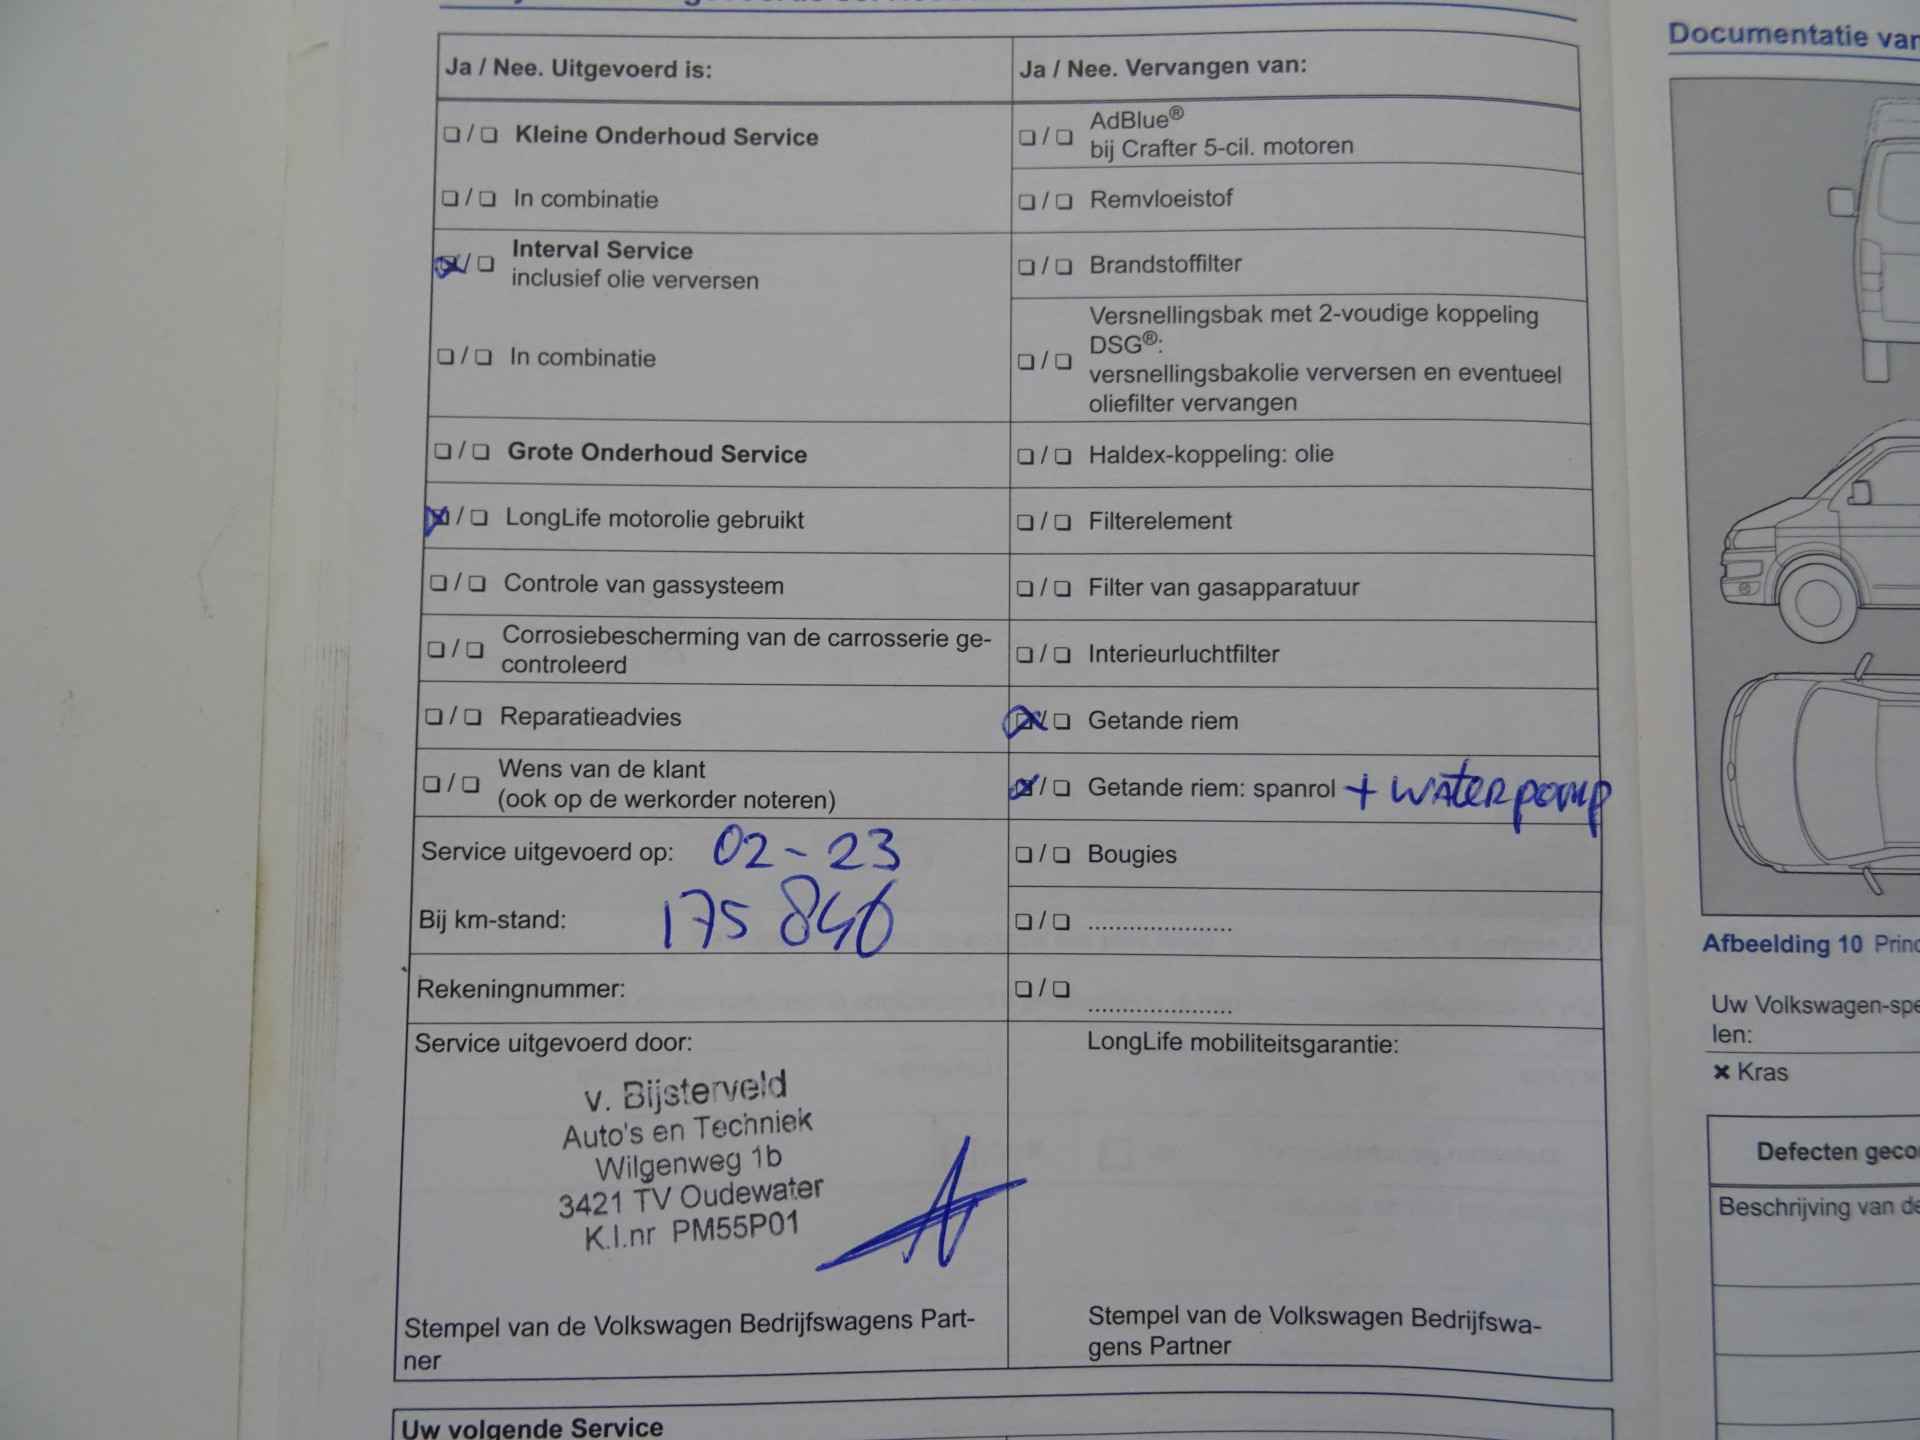 Ja / Nee. Uitgevoerd is:
❏ / ❏ Kleine Onderhoud Service
❏ / ❏ In combinatie
❏ / ❏ Interval Service
inclusief olie verversen
❏ / ❏ In combinatie
❏ / ❏ Grote Onderhoud Service
❏ / ❏ LongLife motorolie gebruikt
❏ / ❏ Controle van gassysteem
❏ / ❏ Corrosiebescherming van de carrosserie ge-
controleerd
❏ / ❏ Reparatieadvies
❏ / ❏ Wens van de klant
(ook op de werkorder noteren)
Service uitgevoerd op: 02-23
Bij km-stand: 175 846
Rekeningnummer:
Service uitgevoerd door:
v. Bijsterveld
Auto's en Techniek
Wilgenweg 1b
3421 TV Oudewater
K.I.nr PM55P01
Stempel van de Volkswagen Bedrijfswagens Part-
ner
Ja / Nee. Vervangen van:
❏ / ❏ AdBlue®
bij Crafter 5-cil. motoren
❏ / ❏ Remvloeistof
❏ / ❏ Brandstoffilter
❏ / ❏ Versnellingsbak met 2-voudige koppeling
DSG®:
versnellingsbakolie verversen en eventueel
oliefilter vervangen
❏ / ❏ Haldex-koppeling: olie
❏ / ❏ Filterelement
❏ / ❏ Filter van gasapparatuur
❏ / ❏ Interieurluchtfilter
❏ / ❏ Getande riem
❏ / ❏ Getande riem: spanrol + waterpomp
❏ / ❏ Bougies
❏ / ❏ .....................
❏ / ❏ .....................
LongLife mobiliteitsgarantie:
Stempel van de Volkswagen Bedrijfswa-
gens Partner
Uw volgende Service
Documentatie van
Afbeelding 10 Princ
Uw Volkswagen-spe
len:
✖ Kras
Defecten geco
Beschrijving van de